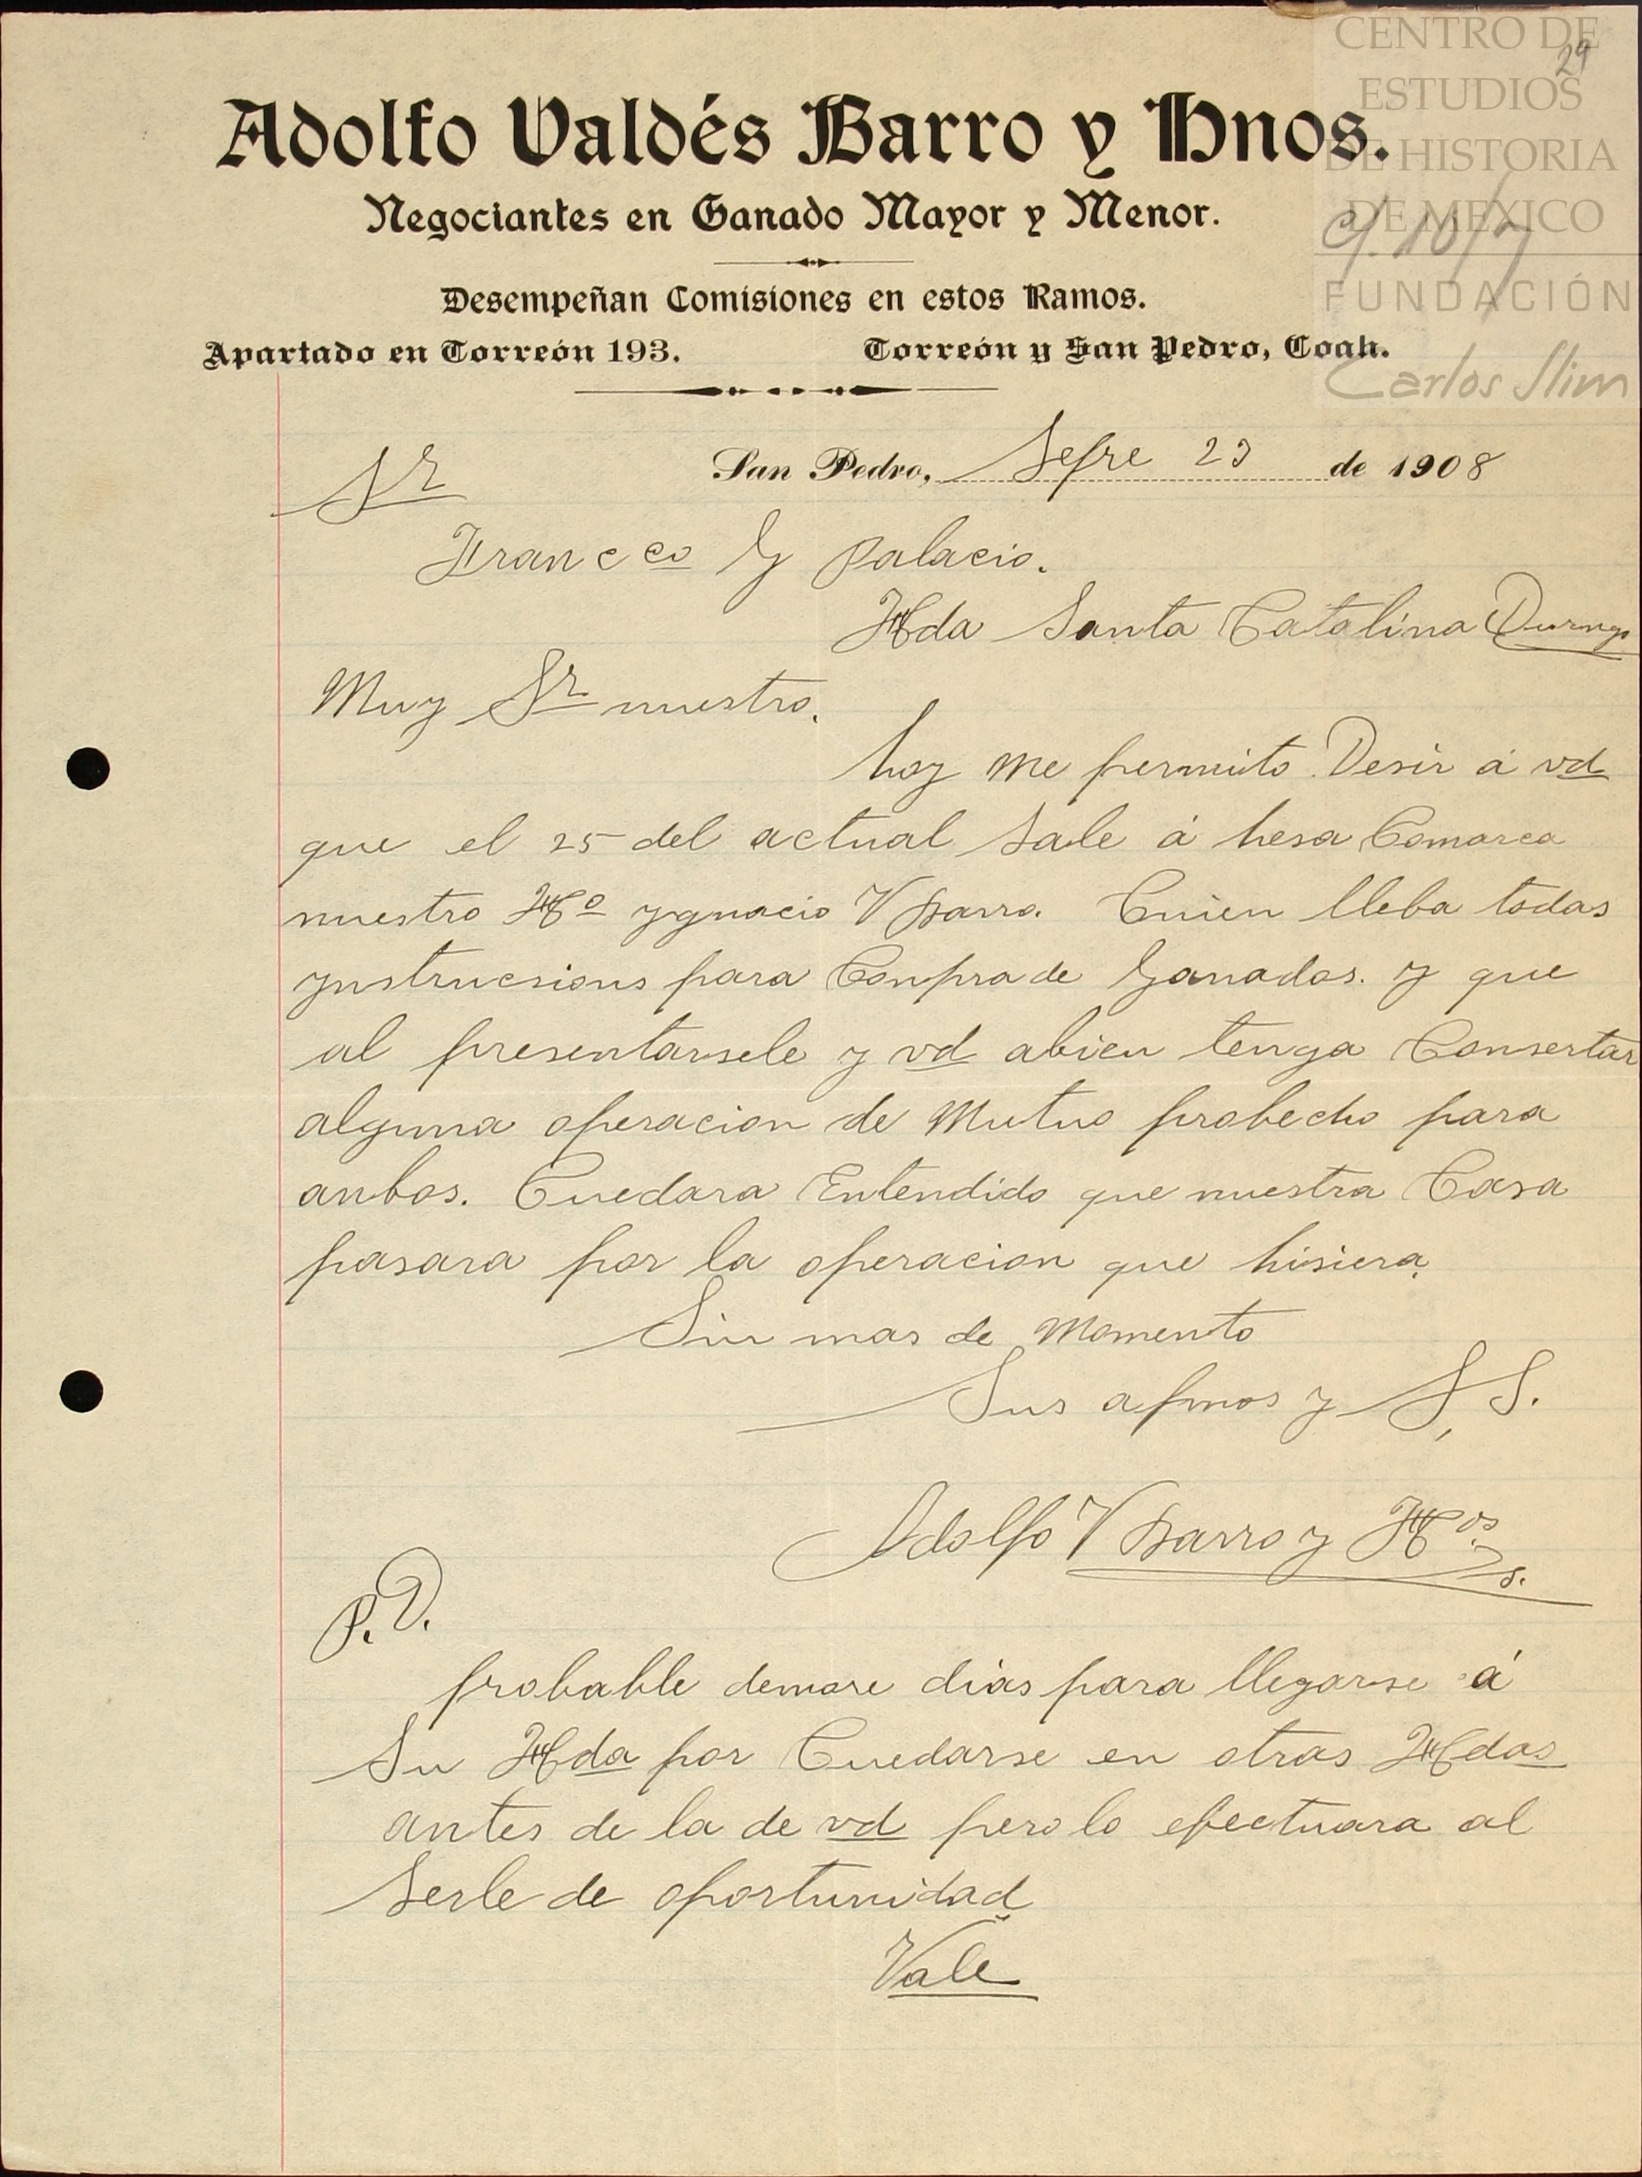 CENTRO DE
ESTUDIOS
DE HISTORIA
DE MEXICO
FUNDACIÓN
Carlos Slim
29
Adolfo Valdés Barro y Hnos.
Negociantes en Ganado Mayor y Menor.
Desempeñan Comisiones en estos Ramos.
Apartado en Torreón 193. Torreón y San Pedro, Coah.
San Pedro, Sefre 23 de 1908
Sr
Francco G Palacio.
Hda Santa Catalina Durngo
Muy Sr nuestro.
hoy me permito Desir á vd
que el 25 del actual sale á hesa Comarca
nuestro Ho ygnacio V Barro. Cuien lleba todas
ynstrucsions para Conpra de Ganados. y que
al presentarsele y vd abien tenga Consertar
alguna operacion de Mutuo probecho para
anbos. Cuedara Entendido que nuestra Casa
pasara por la operacion que hisiera.
Sin mas de Momento
Sus afmos y S, S.
Adolfo V Barro y Hos
P.D.
probable demore dias para llegarse á
Su Hda por Cuedarse en otras Hdas
antes de la de vd pero lo efectuara al
Serle de oportunidad
Vale